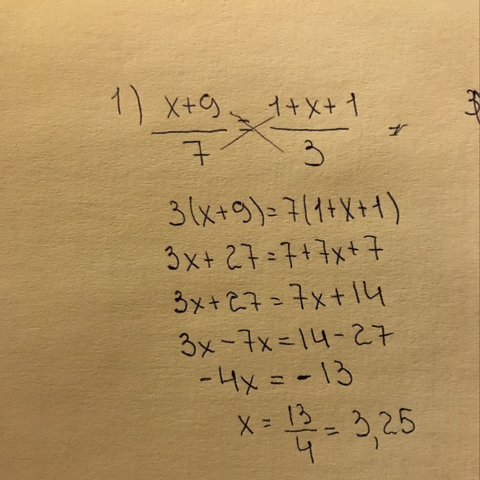 1) (x+9)/7 = (1+x+1)/3
3(x+9)=7(1+x+1)
3x+27=7+7x+7
3x+27=7x+14
3x-7x=14-27
-4x=-13
x=13/4=3,25